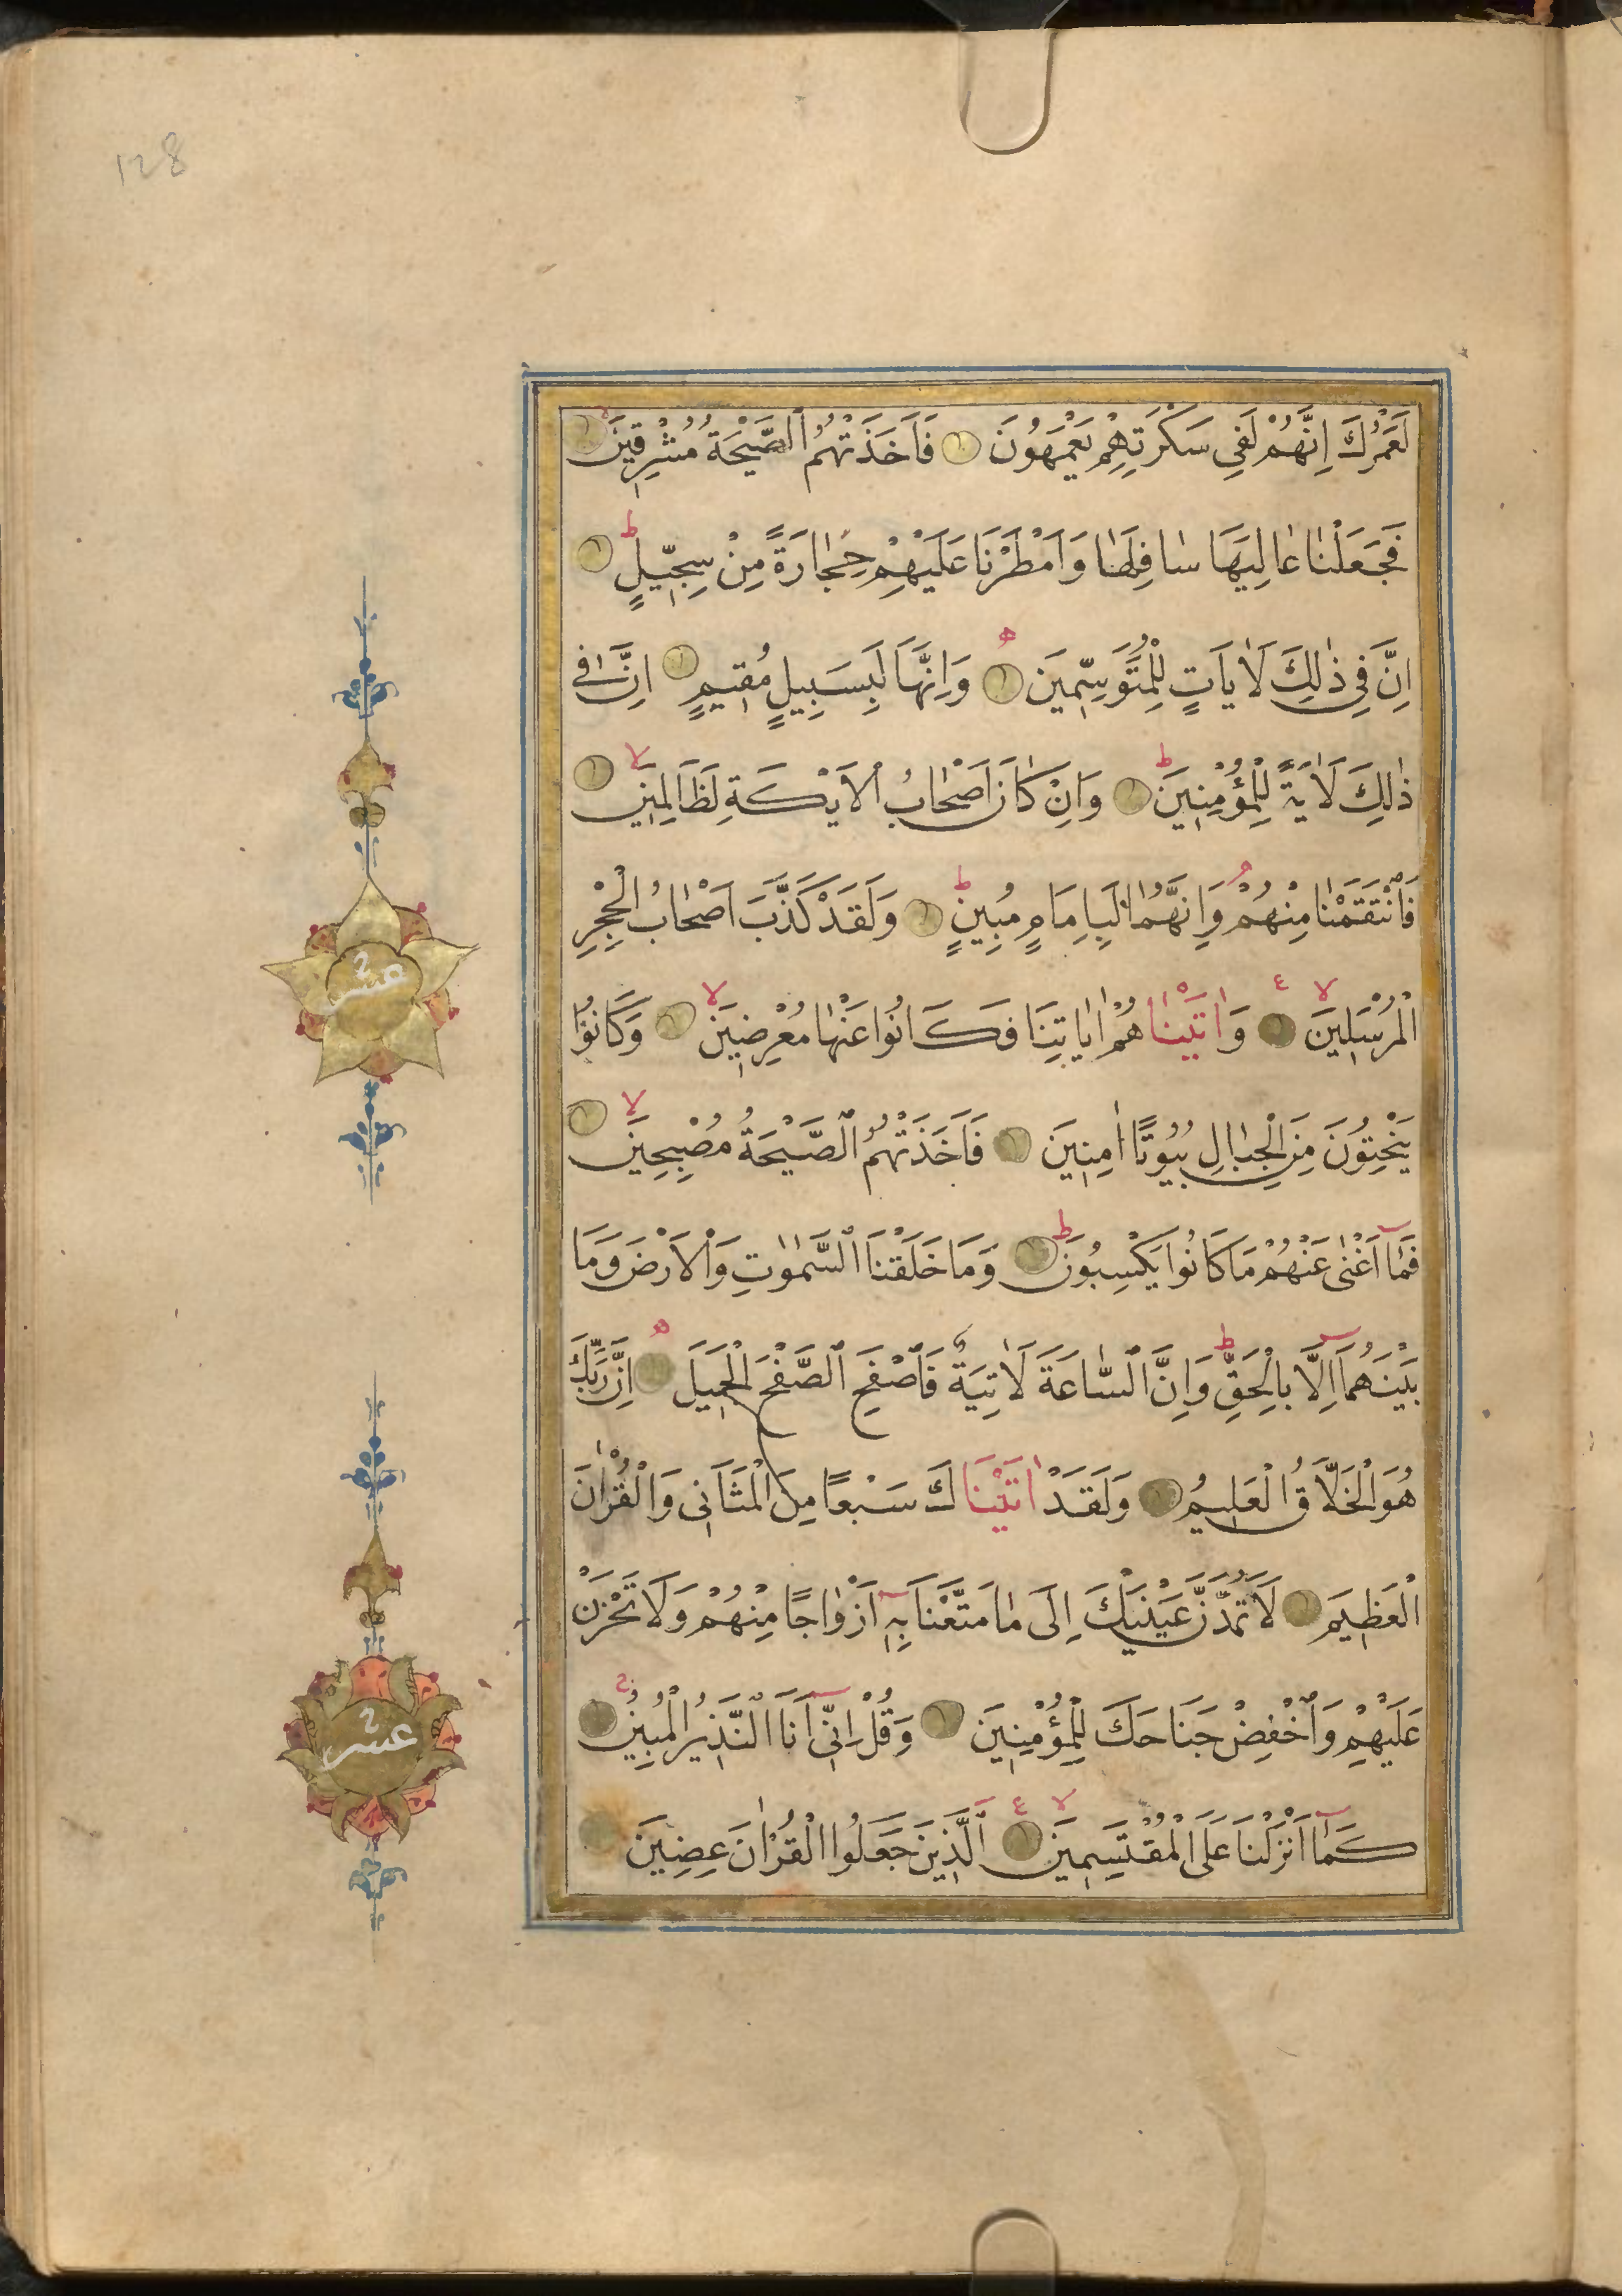 128
لَعَمْرُكَ اِنَّهُمْ لَفِى سَكْرَتِهِمْ يَعْمَهُونَ فَاَخَذَتْهُمُ الصَّيْحَةُ مُشْرِقِينَ
فَجَعَلْنَا عَالِيَهَا سَافِلَهَا وَاَمْطَرْنَا عَلَيْهِمْ حِجَارَةً مِنْ سِجِّيلٍ ط
اِنَّ فِى ذٰلِكَ لَاٰيَاتٍ لِلْمُتَوَسِّمِينَ ه وَاِنَّهَا لَبِسَبِيلٍ مُقِيمٍ اِنَّ فِى
ذٰلِكَ لَاٰيَةً لِلْمُؤْمِنِينَ ط وَاِنْ كَانَ اَصْحَابُ الْاَيْكَةِ لَظَالِمِينَ لا
فَانْتَقَمْنَا مِنْهُمْ م وَاِنَّهُمَا لَبِاِمَامٍ مُبِينٍ ط وَلَقَدْ كَذَّبَ اَصْحَابُ الْحِجْرِ
الْمُرْسَلِينَ لا ع وَاٰتَيْنَاهُمْ اٰيَاتِنَا فَكَانُوا عَنْهَا مُعْرِضِينَ لا وَكَانُوا
يَنْحِتُونَ مِنَ الْجِبَالِ بُيُوتًا اٰمِنِينَ فَاَخَذَتْهُمُ الصَّيْحَةُ مُصْبِحِينَ لا
فَمَا اَغْنٰى عَنْهُمْ مَا كَانُوا يَكْسِبُونَ ط وَمَا خَلَقْنَا السَّمٰوٰتِ وَالْاَرْضَ وَمَا
بَيْنَهُمَا اِلَّا بِالْحَقِّ ط وَاِنَّ السَّاعَةَ لَاٰتِيَةٌ فَاصْفَحِ الصَّفْحَ الْجَمِيلَ ه اِنَّ رَبَّكَ
هُوَ الْخَلَّاقُ الْعَلِيمُ وَلَقَدْ اٰتَيْنَاكَ سَبْعًا مِنَ الْمَثَانِى وَالْقُرْاٰنَ
الْعَظِيمَ لَا تَمُدَّنَّ عَيْنَيْكَ اِلَى مَا مَتَّعْنَا بِهِ اَزْوَاجًا مِنْهُمْ وَلَا تَحْزَنْ
عَلَيْهِمْ وَاخْفِضْ جَنَاحَكَ لِلْمُؤْمِنِينَ وَقُلْ اِنِّى اَنَا النَّذِيرُ الْمُبِينُ ج
كَمَا اَنْزَلْنَا عَلَى الْمُقْتَسِمِينَ لا ع الَّذِينَ جَعَلُوا الْقُرْاٰنَ عِضِينَ
عشر
عشر